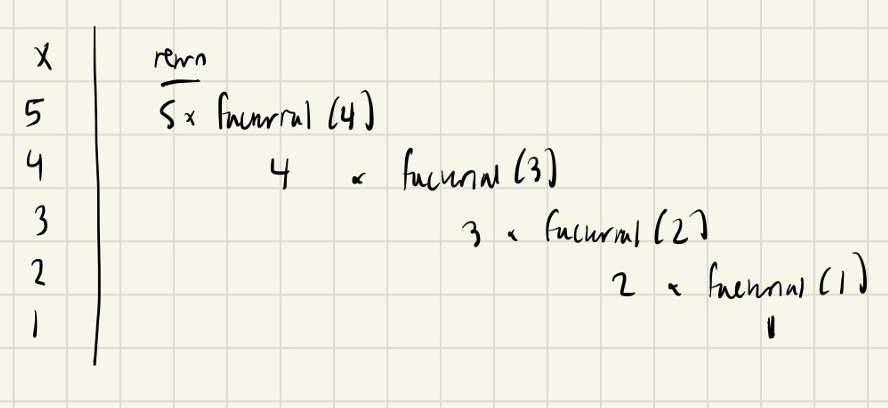 x return
5 5 x factorial (4)
4 4 x factorial (3)
3 3 x factorial (2)
2 2 x factorial (1)
1 1